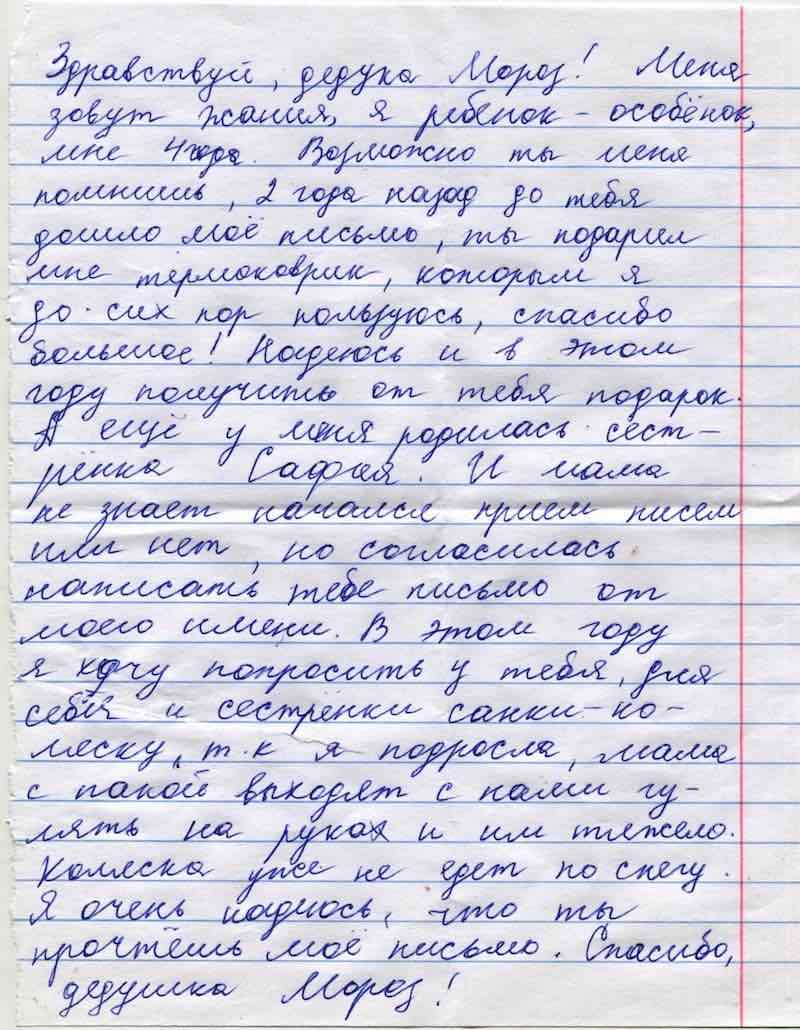 Здравствуй, дедука Мороз! Меня
зовут Жания, я ребенок - особёнок,
мне 4 года. Возможно ты меня
помнишь, 2 года назад до тебя
дошло моё письмо, ты подарил
мне термоковрик, которым я
до сих пор пользуюсь, спасибо
большое! Надеюсь и в этом
году получить от тебя подарок.
А ещё у меня родилась сест-
рёнка Сафия. И мама
не знает начался прием писем
или нет, но согласилась
написать тебе письмо от
моего имени. В этом году
я хочу попросить у тебя, для
себя и сестрёнки санки-ко-
ляску, т.к я подросла, мама
с папой выходят с нами гу-
лять на руках и им тяжело.
Коляска уже не едет по снегу.
Я очень надеюсь, что ты
прочтёшь моё письмо. Спасибо,
дедушка Мороз!